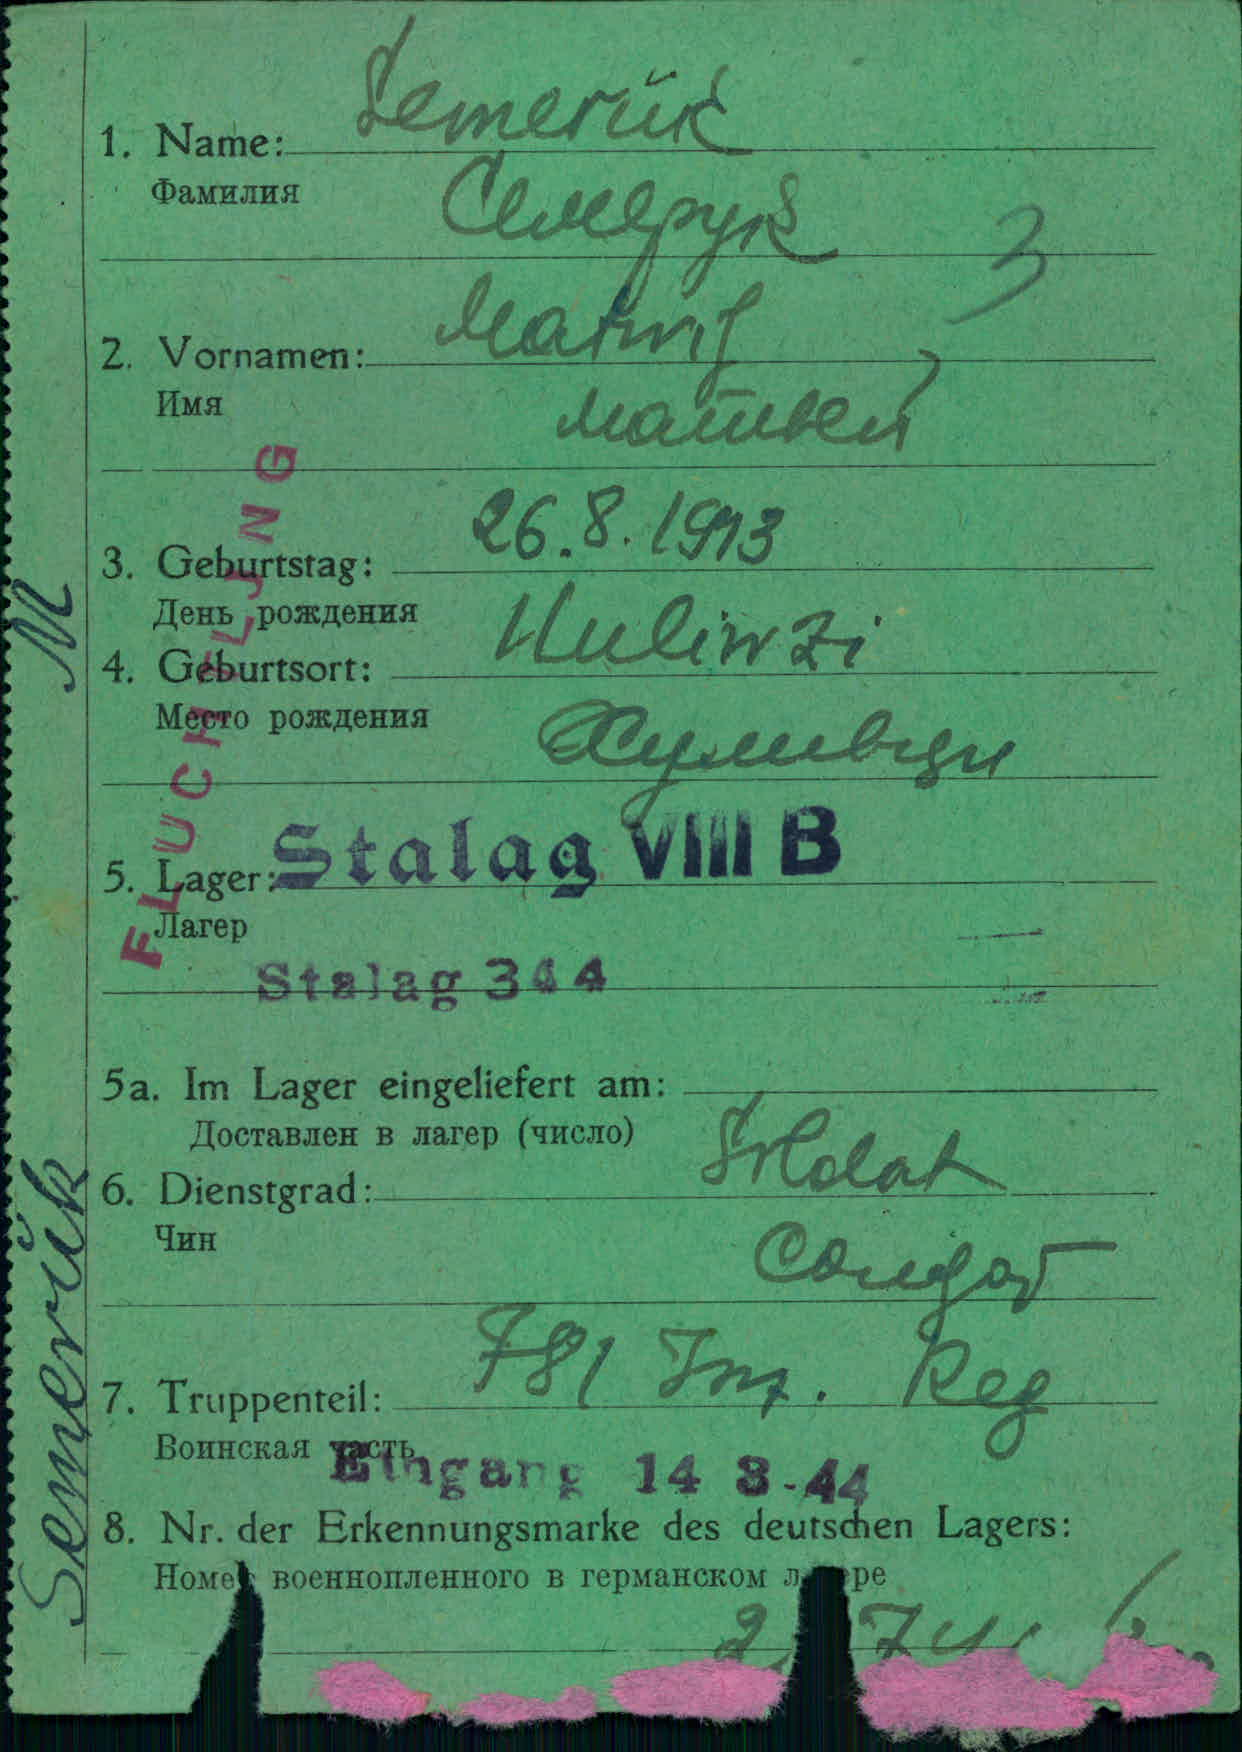 Semerük
1. Name:
Фамилия
Семерук
3
Matwij
2. Vornamen:
Имя
Матвей
26.8.1913
3. Geburtstag:
День рождения
Huliwzi
4. Geburtsort:
Место рождения
Хуливци
5. Lager: Stalag VIII B
Лагер
Stalag 344
5a. Im Lager eingeliefert am:
Доставлен в лагер (число)
Soldat
6. Dienstgrad:
Чин
Солдат
781 Inf. Reg
7. Truppenteil:
Воинская часть
Eingang 14 8.44
8. Nr. der Erkennungsmarke des deutschen Lagers:
Номер военнопленного в германском лагере
FLUCHTLING
M
Semerük